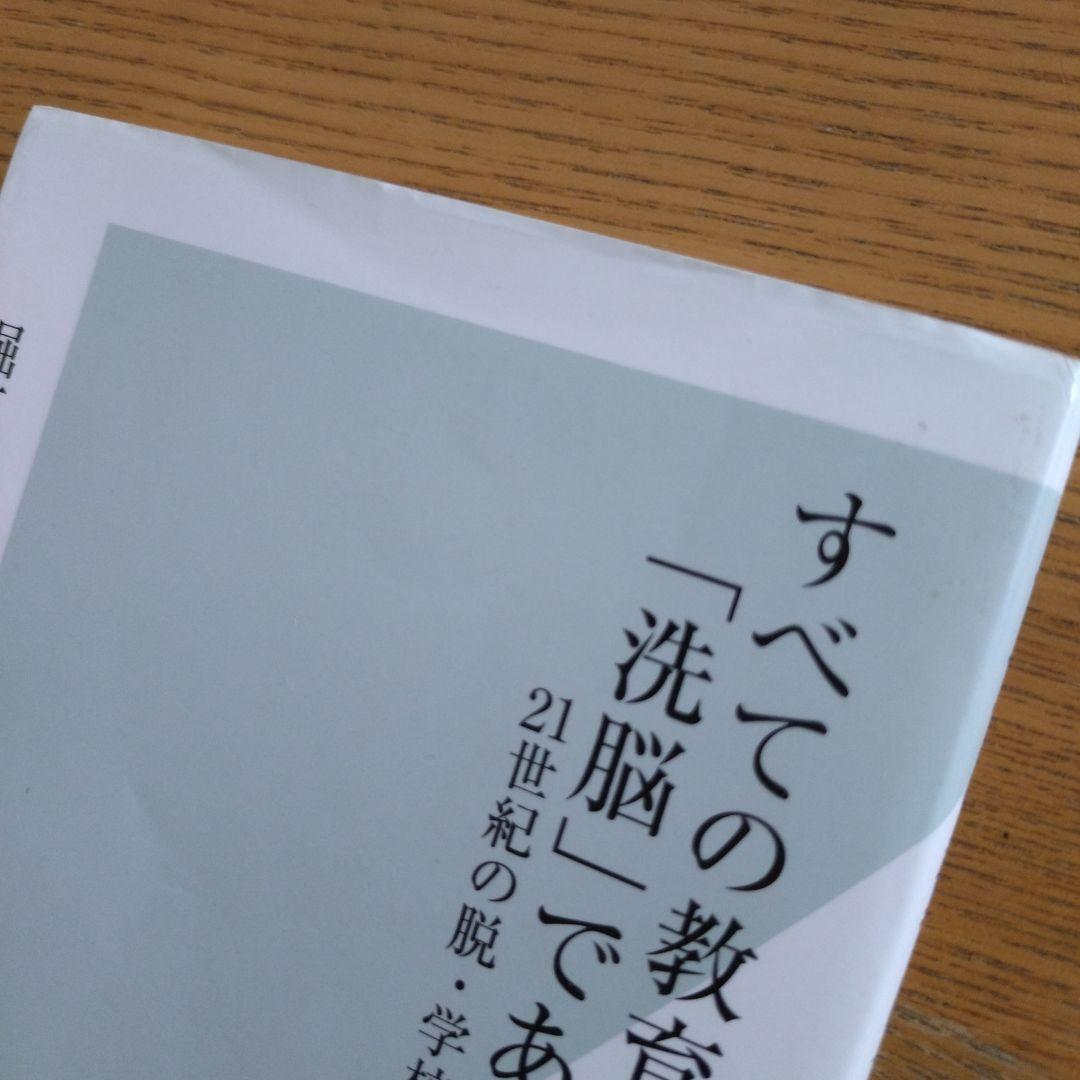 すべての教育
「洗脳」であ
21世紀の脱・学校
堀